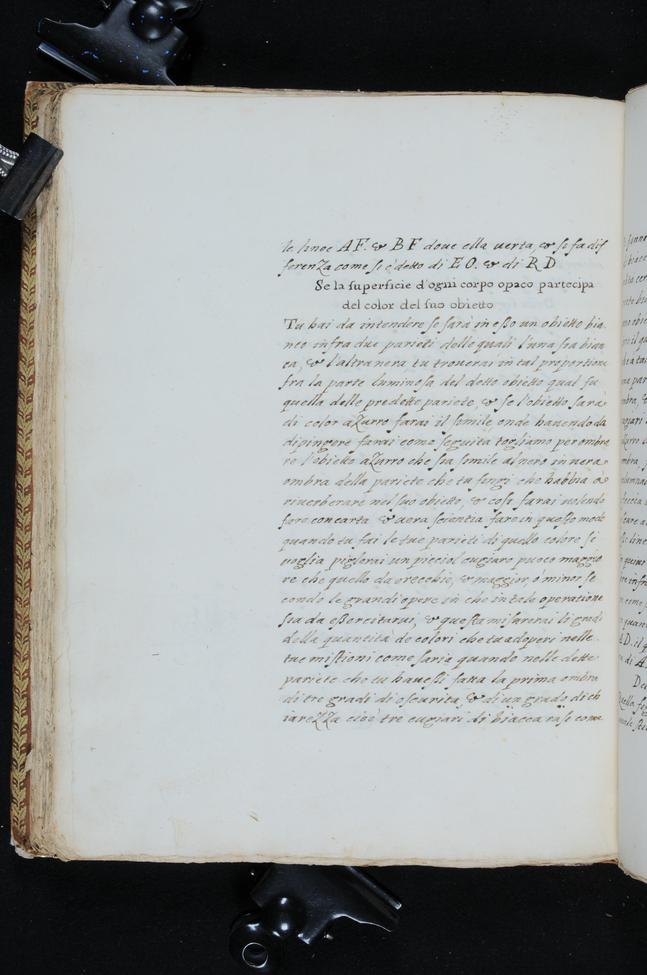 le linee A F. & B F doue ella uerta, & si fa dif
ferenza come si è detto di E O. & di R D
Se la superficie d'ogni corpo opaco partecipa
del color del suo obietto
Tu hai da intendere se sarà in esso un obietto bia
nco infra due parieti delle quali l'una sia bian
ca, & l'altra nera, tu trouerai in tal proportione
fra la parte luminosa del detto obietto qual fu
quella delle predette pariete, & se l'obietto sarà
di color azurro farai il simile, onde hauendo da
dipingere farai come seguita togliamo per ombra
re l'obietto azurro che sia simile al nero in uera
ombra della pariete che tu fingi che habbia à
riuerberare nel suo obietto, & cosi farai uolendo
fare con certa & uera scientia fare in questo modo
quando tu fai le tue parieti di quello colore si
uoglia piglierai un picciol cugiaro puoco maggio
re che quello da orecchie, & maggior, o minor se
condo le grandi opere in che in tale operatione
sia da essercitarui, & questa misurerai li gradi
della quantita de colori che tu adoperi nelle
tue mistioni come saria quando nelle dette
pariete che tu hauessi fatta la prima ombra
di tre gradi di oscurita, & di un grado di ch
iarezza cioè tre cugiari di biacca rasi come